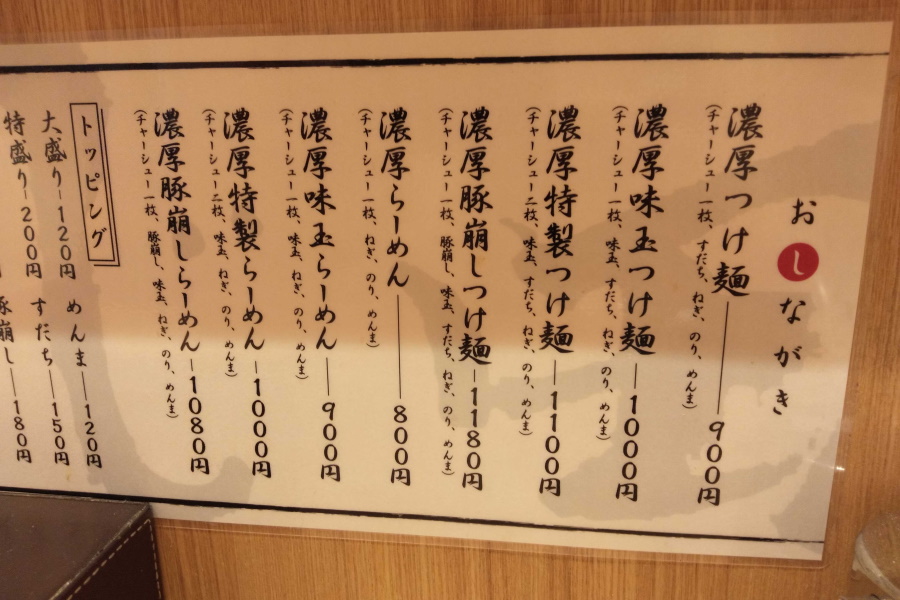 おしながき
濃厚つけ麺 900円
(チャーシュー一枚、すだち、ねぎ、のり、めんま)
濃厚味玉つけ麺 1000円
(チャーシュー一枚、味玉、すだち、ねぎ、のり、めんま)
濃厚特製つけ麺 1100円
(チャーシュー二枚、味玉、すだち、ねぎ、のり、めんま)
濃厚豚崩しつけ麺 1180円
(チャーシュー一枚、豚崩し、味玉、すだち、ねぎ、のり、めんま)
濃厚らーめん 800円
(チャーシュー一枚、ねぎ、のり、めんま)
濃厚味玉らーめん 900円
(チャーシュー一枚、味玉、ねぎ、のり、めんま)
濃厚特製らーめん 1000円
(チャーシュー二枚、味玉、ねぎ、のり、めんま)
濃厚豚崩しらーめん 1080円
(チャーシュー一枚、豚崩し、味玉、ねぎ、のり、めんま)
トッピング
めんま 120円
大盛り 120円
すだち 150円
特盛り 200円
豚崩し 180円